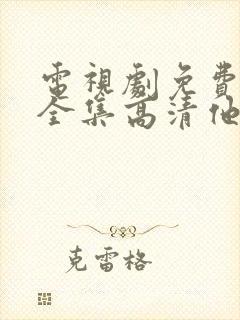 電視劇免費
全集高清他
克雷格